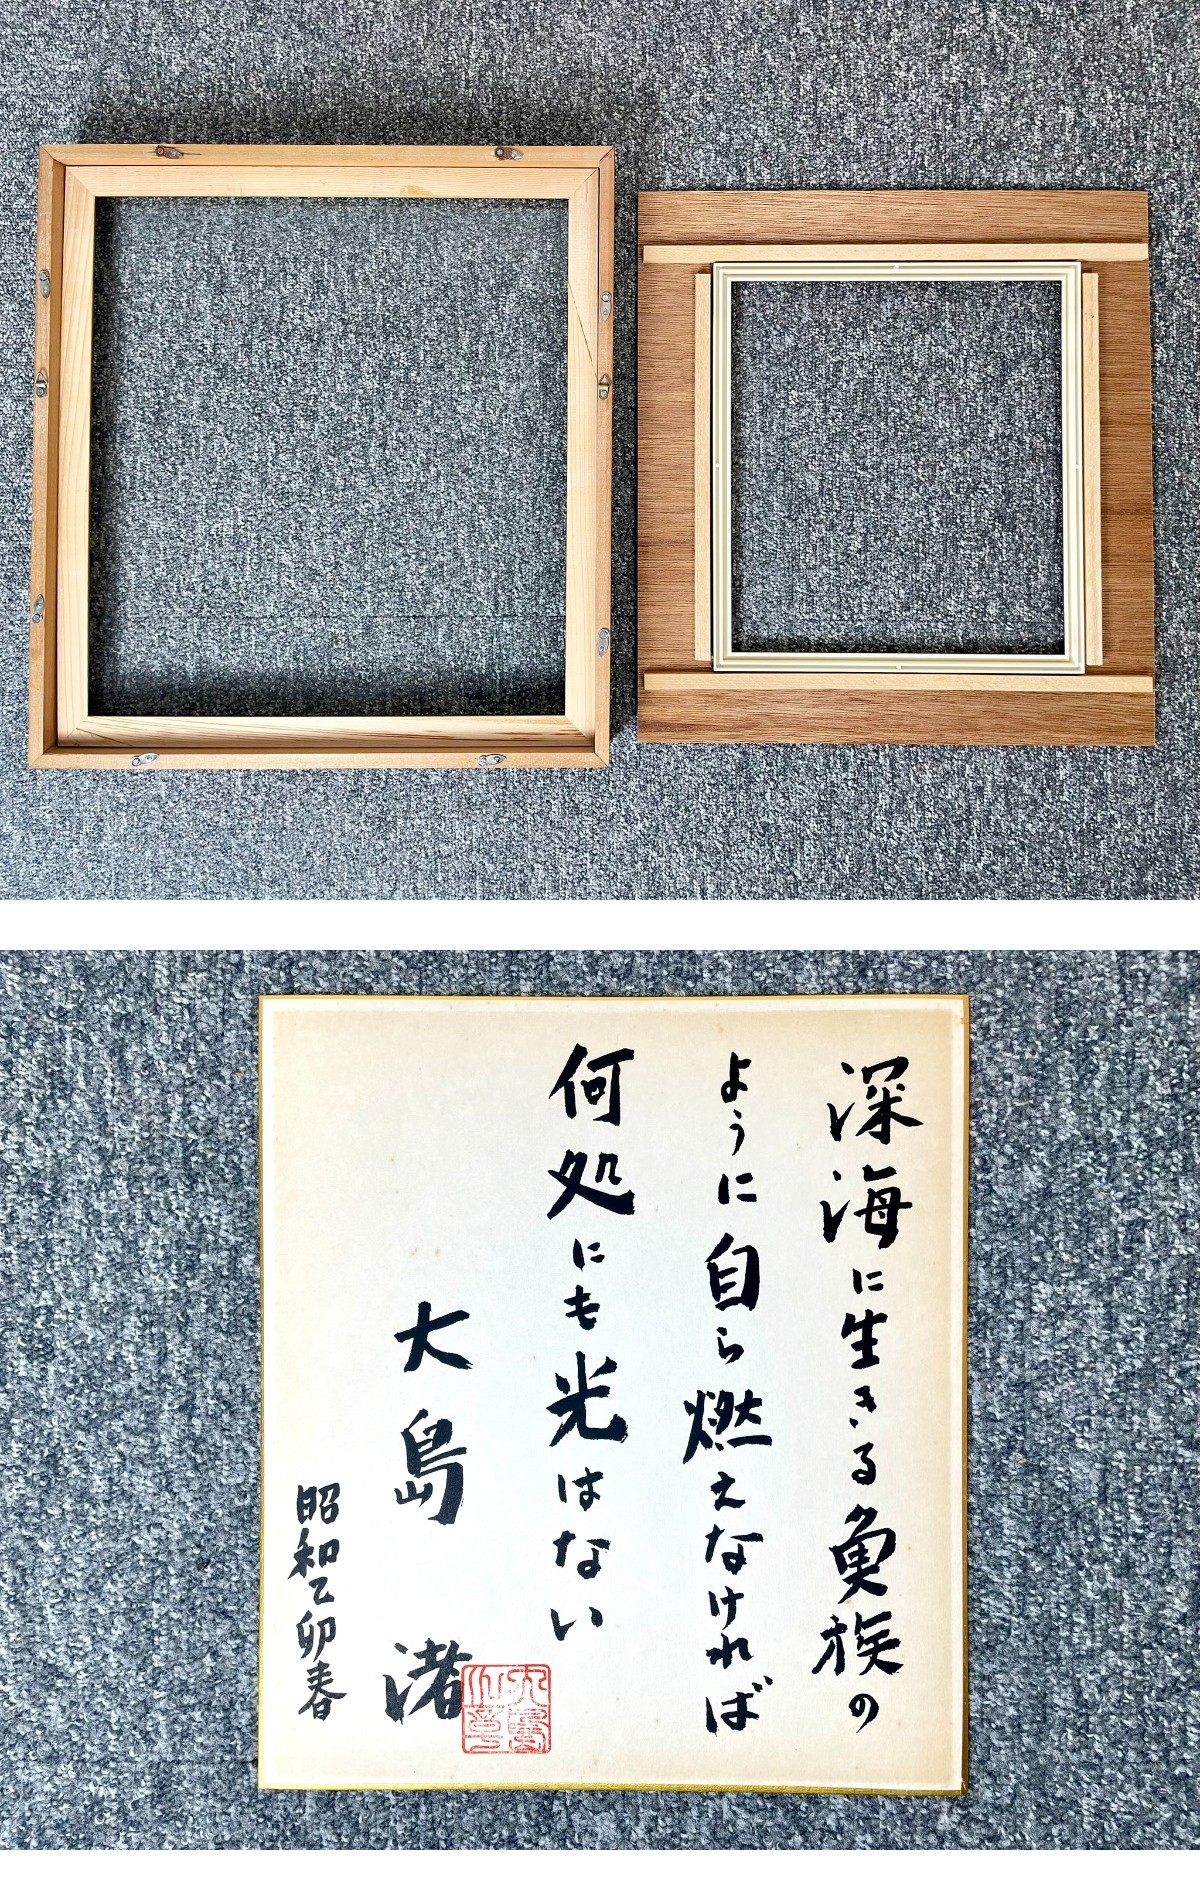 深海に生きる魚族の
ように自ら燃えなければ
何処にも光はない
大島渚
昭和乙卯春